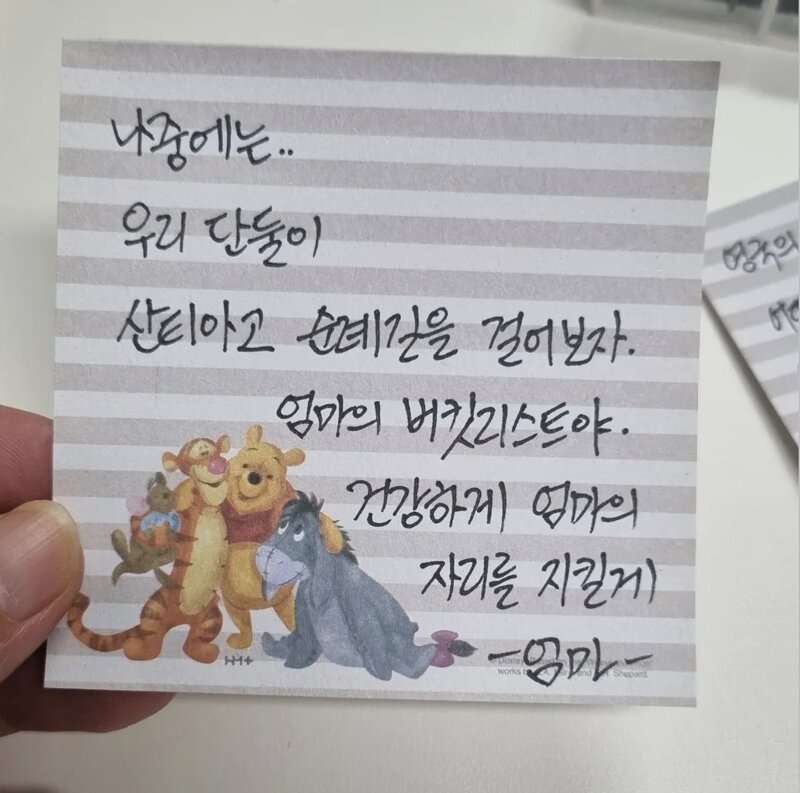 나중에는..
우리 단둘이
산티아고 순례길을 걸어보자.
엄마의 버킷리스트야.
건강하게 엄마의
자리를 지킬게
-엄마-
Disney
works and H. Shepard.